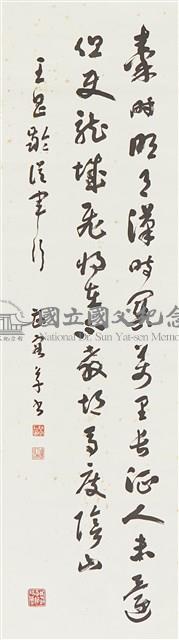 秦時明月漢時關萬里長征人未還
但使龍城飛將在不教胡馬度陰山
王昌齡從軍行
國立國父紀念
National Dr. Sun Yat-sen Memo